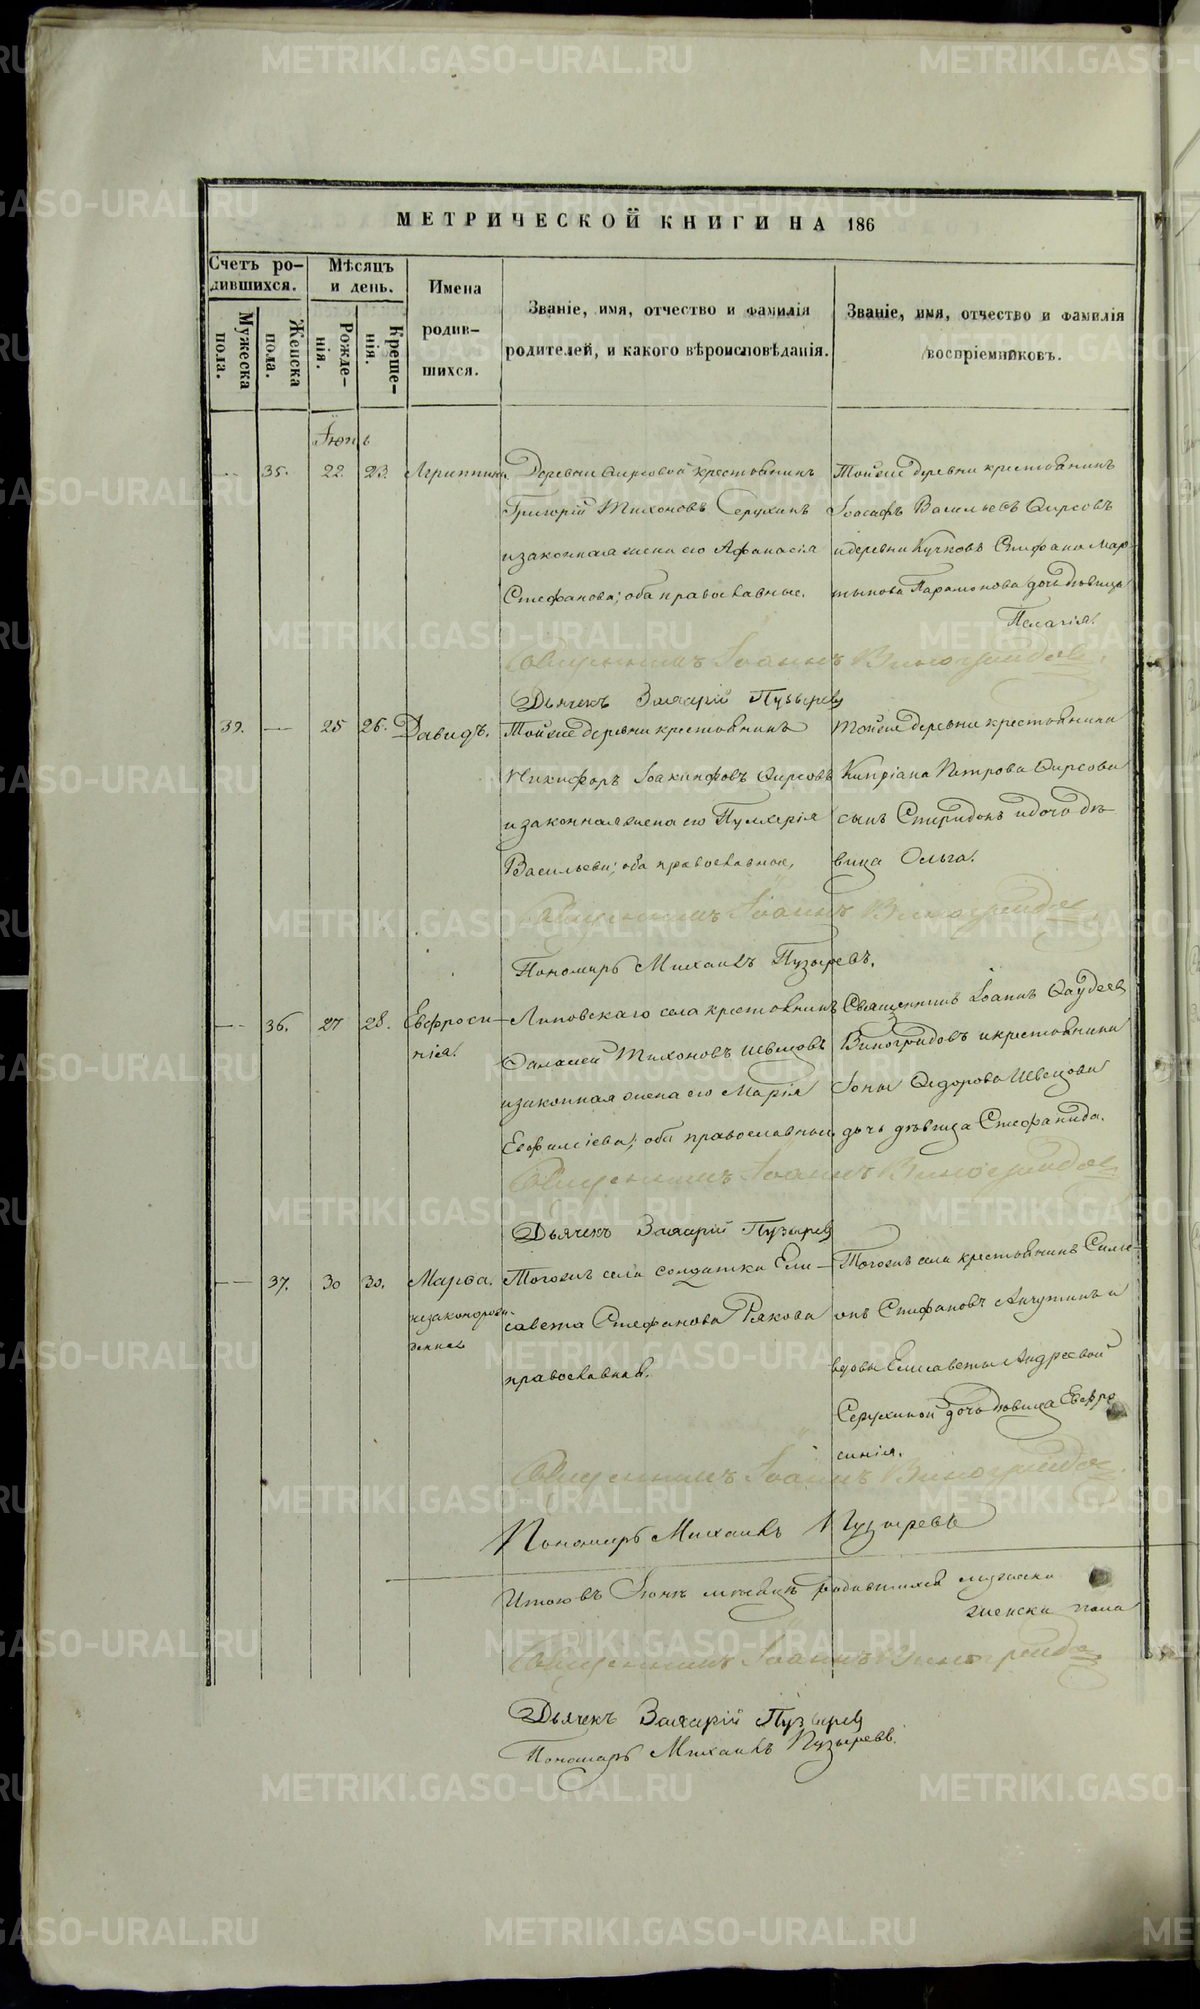 МЕТРИЧЕСКОЙ КНИГИ НА 186
Счетъ ро-
дившихся.
Мѣсяцъ
и день.
Имена
родив-
шихся.
Званіе, имя, отчество и фамилія
родителей, и какого вѣроисповѣданія.
Званіе, имя, отчество и фамилія
воспріемниковъ.
Мужеска
пола.
Женска
пола.
Рожде-
нія.
Креще-
нія.
Іюнь
35. 22. 23. Агриппина
Деревни Фирсовой крестьянинъ
Григорій Тихоновъ Серухинъ
и законная жена его Афанасія
Стефанова; оба православные.
Тойже деревни крестьянинъ
Іоасафъ Васильевъ Фирсовъ
и деревни Стефана Мар-
тынова Парамонова дочь дѣвица
Пелагія.
Священникъ Іоаннъ Виноградовъ.
Дьячекъ Захарій Пузыревъ
39. 25 26. Давидъ.
Тойже деревни крестьянинъ
Никифоръ Іоакинфовъ Фирсовъ
и законная жена его Пулхерія
Васильева; оба православные,
Тойже деревни крестьянина
Кипріана Петрова Фирсова
сынъ Спиридонъ и дочь дѣ-
вица Ольга.
Священникъ Іоаннъ Виноградовъ
Пономарь Михаилъ Пузыревъ.
36. 27 28. Евфроси-
нія.
Липовскаго села крестьянинъ
Тихоновъ Швецовъ
и законная жена его Марія
Евфиміева; оба православные
Священникъ Іоаннъ Фаддеевъ
Виноградовъ и крестьянина
Іоны Федорова Швецова
дочь дѣвица Стефанида.
Священникъ Іоаннъ Виноградовъ
Дьячекъ Захарій Пузыревъ
37. 30 30. Марѳа.
незаконорож-
денная
Тогожъ села солдатка Ели-
савета Стефанова Рякова
православная.
Тогожъ села крестьянинъ Симе-
онъ Стефановъ Анчутинъ и
вдовы Елисаветы Андреевой
Серухиной дочь дѣвица Евфро
синія.
Священникъ Іоаннъ Виноградовъ.
Пономарь Михаилъ Пузыревъ
Итого въ Іюнѣ мѣсяцѣ родившихся мужеска
женска пола
Священникъ Іоаннъ Виноградовъ
Дьячекъ Захарій Пузыревъ
Пономарь Михаилъ Пузыревъ.
METRIKI.GASO-URAL.RU